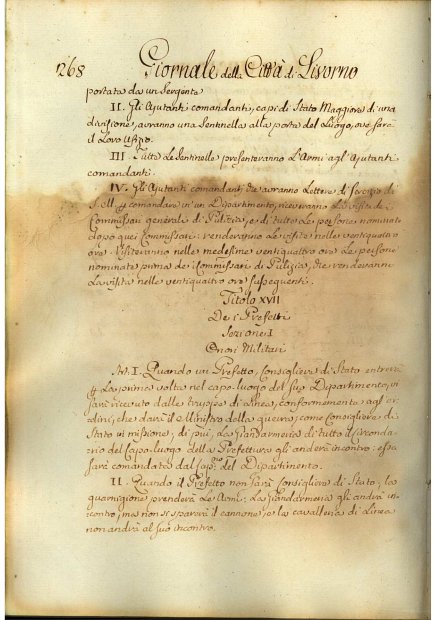 1268 Giornale della Città di Livorno
portata da un Sergente
II. Gli Ajutanti comandanti, capi di Stato Maggiore di una
divisione, avranno una Sentinella alla porta del Luogo, ove sarà
il Loro Ufizio.
III Tutte Le Sentinelle presenteranno L'Armi agl'Ajutanti
comandanti.
IV. Gli Ajutanti comandanti, che avranno Lettere di Servizio di
comandare in un Dipartimento, riceveranno La visita de
Commissari generali di Pulizia, e di tutte Le persone nominate
dopo quei Commissari: renderanno Le visite nelle ventiquattro
ore. Visiteranno nelle medesime ventiquattro ore Le persone
nominate prima de' Commissari di Pulizia, che renderanno
La visita nelle ventiquattro ore susseguenti.
Titolo XVII
De' i Prefetti
Sezione I
Onori Militari
Art. I. Quando un Prefetto, Consigliere di Stato entrerà
La prima volta nel capo-luogo del suo Dipartimento, vi
sarà ricevuto dalle truppe di Linea, conformemente agl'or
dini, che darà il Ministro della guerra; come Consigliere di
Stato in missione; di più, La Giandarmeria di tutto il Circonda
rio del Capo-luogo della Prefettura gli anderà incontro: essa
sarà comandata dal Capno del Dipartimento.
II. Quando il Prefetto non sarà Consigliere di Stato, la
guarnigione prenderà Le Armi: La Giandarmeria gli andrà in
contro, ma non si sparerà il cannone, e la cavalleria di Linea
non andrà al suo incontro.